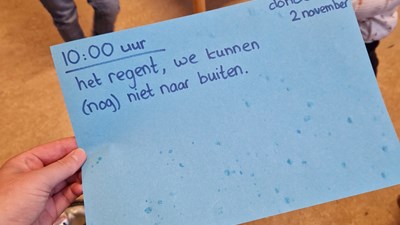 2 november
10:00 uur
het regent, we kunnen
(nog) niet naar buiten.